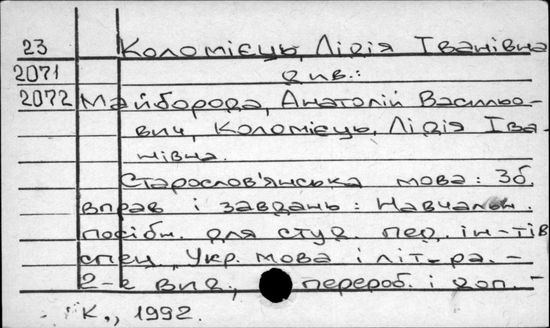 23 Коломієць, Лідія Іванівна
2071 див.:
2072 Майборода, Анатолій Васильо-
вич, Коломієць, Лідія Іва-
нівна.
Старослов'янська мова: Зб.
вправ і завдань: Навчальн.
посібн. для студ. пед. ін-тів
спец. Укр. мова і літ-ра. –
2-е вид., перероб. і доп. –
К., 1992.